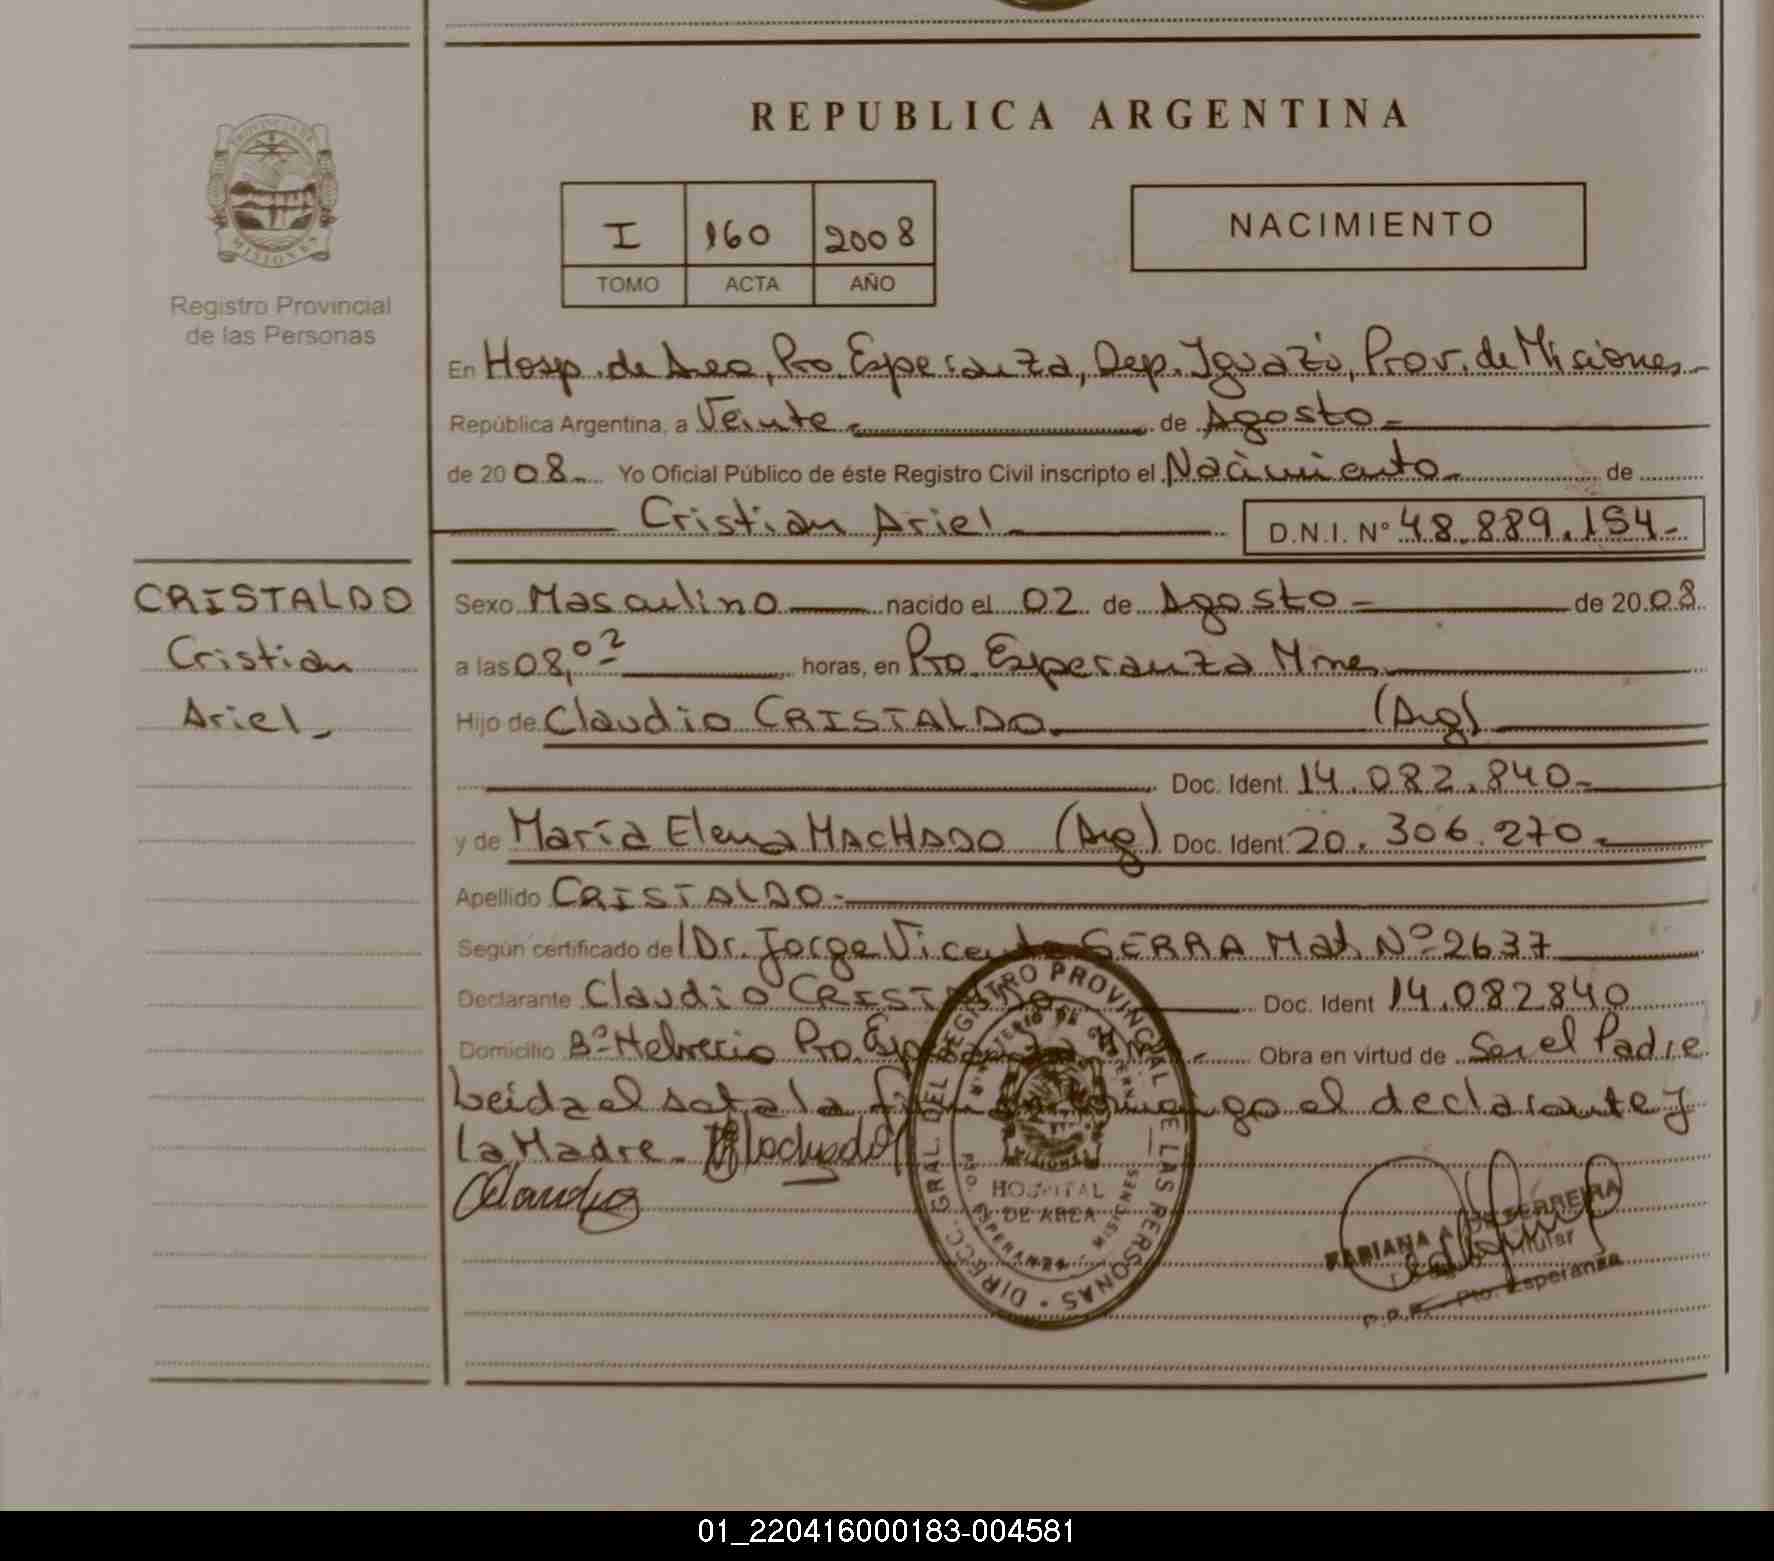 REPUBLICA ARGENTINA
PROVINCIA DE
MISIONES
Registro Provincial
de las Personas
I 160 2008
TOMO ACTA AÑO
NACIMIENTO
En Hosp. de Area, Pto. Esperanza, Dep. Iguazú, Prov. de Misiones
República Argentina, a Veinte de Agosto
de 2008 Yo Oficial Público de éste Registro Civil inscripto el Nacimiento de
Cristian Ariel D.N.I. Nº 48.889.154
CRISTALDO
Cristian
Ariel
Sexo Masculino nacido el 02 de Agosto de 2008
a las 08,02 horas, en Pto. Esperanza Mnes
Hijo de Claudio CRISTALDO (Arg)
Doc. Ident. 14.082.840
y de María Elena MACHADO (Arg) Doc. Ident. 20.306.270
Apellido CRISTALDO
Según certificado de Dr. Jorge Vicente SERRA Mat. Nº 2637
Declarante Claudio CRISTALDO Doc. Ident 14.082840
Domicilio Bº Helvecio Pto. Esperanza Obra en virtud de Ser el Padre
Leída el acta la conmigo el declarante y
la Madre
DIRECC. GRAL. DEL REGISTRO PROVINCIAL DE LAS PERSONAS
MINISTERIO DE GOBIERNO
HOSPITAL
DE AREA
PTO. ESPERANZA - MISIONES
FABIANA A. FERREIRA
Titular
R.P.P. - Pto. Esperanza
01_220416000183-004581